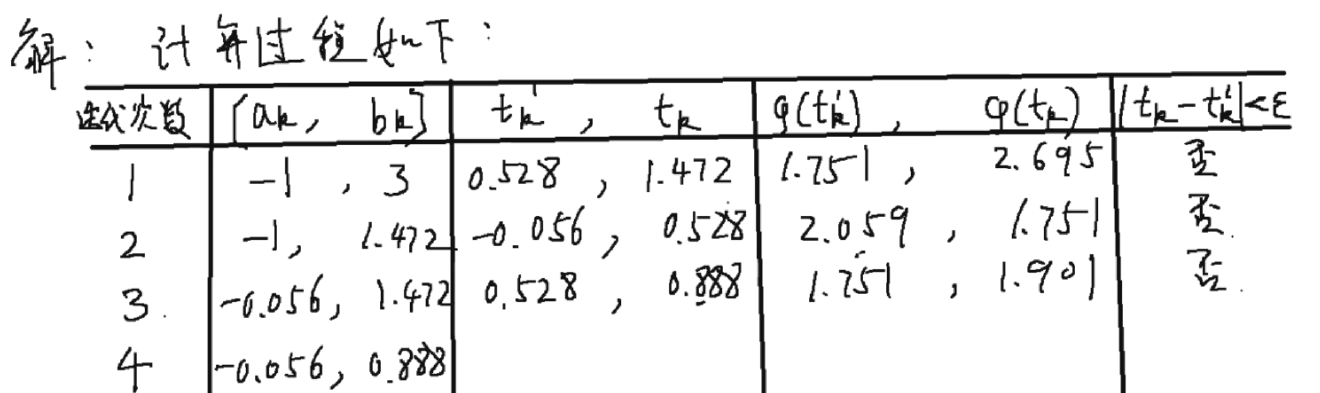 解： 计算过程如下：
迭代次数 [aₖ, bₖ] tₖ′, tₖ φ(tₖ′), φ(tₖ) |tₖ-tₖ′|<ε
1 -1, 3 0.528, 1.472 1.751, 2.695 否
2 -1, 1.472 -0.056, 0.528 2.059, 1.751 否.
3. -0.056, 1.472 0.528, 0.888 1.751, 1.901 否.
4 -0.056, 0.888